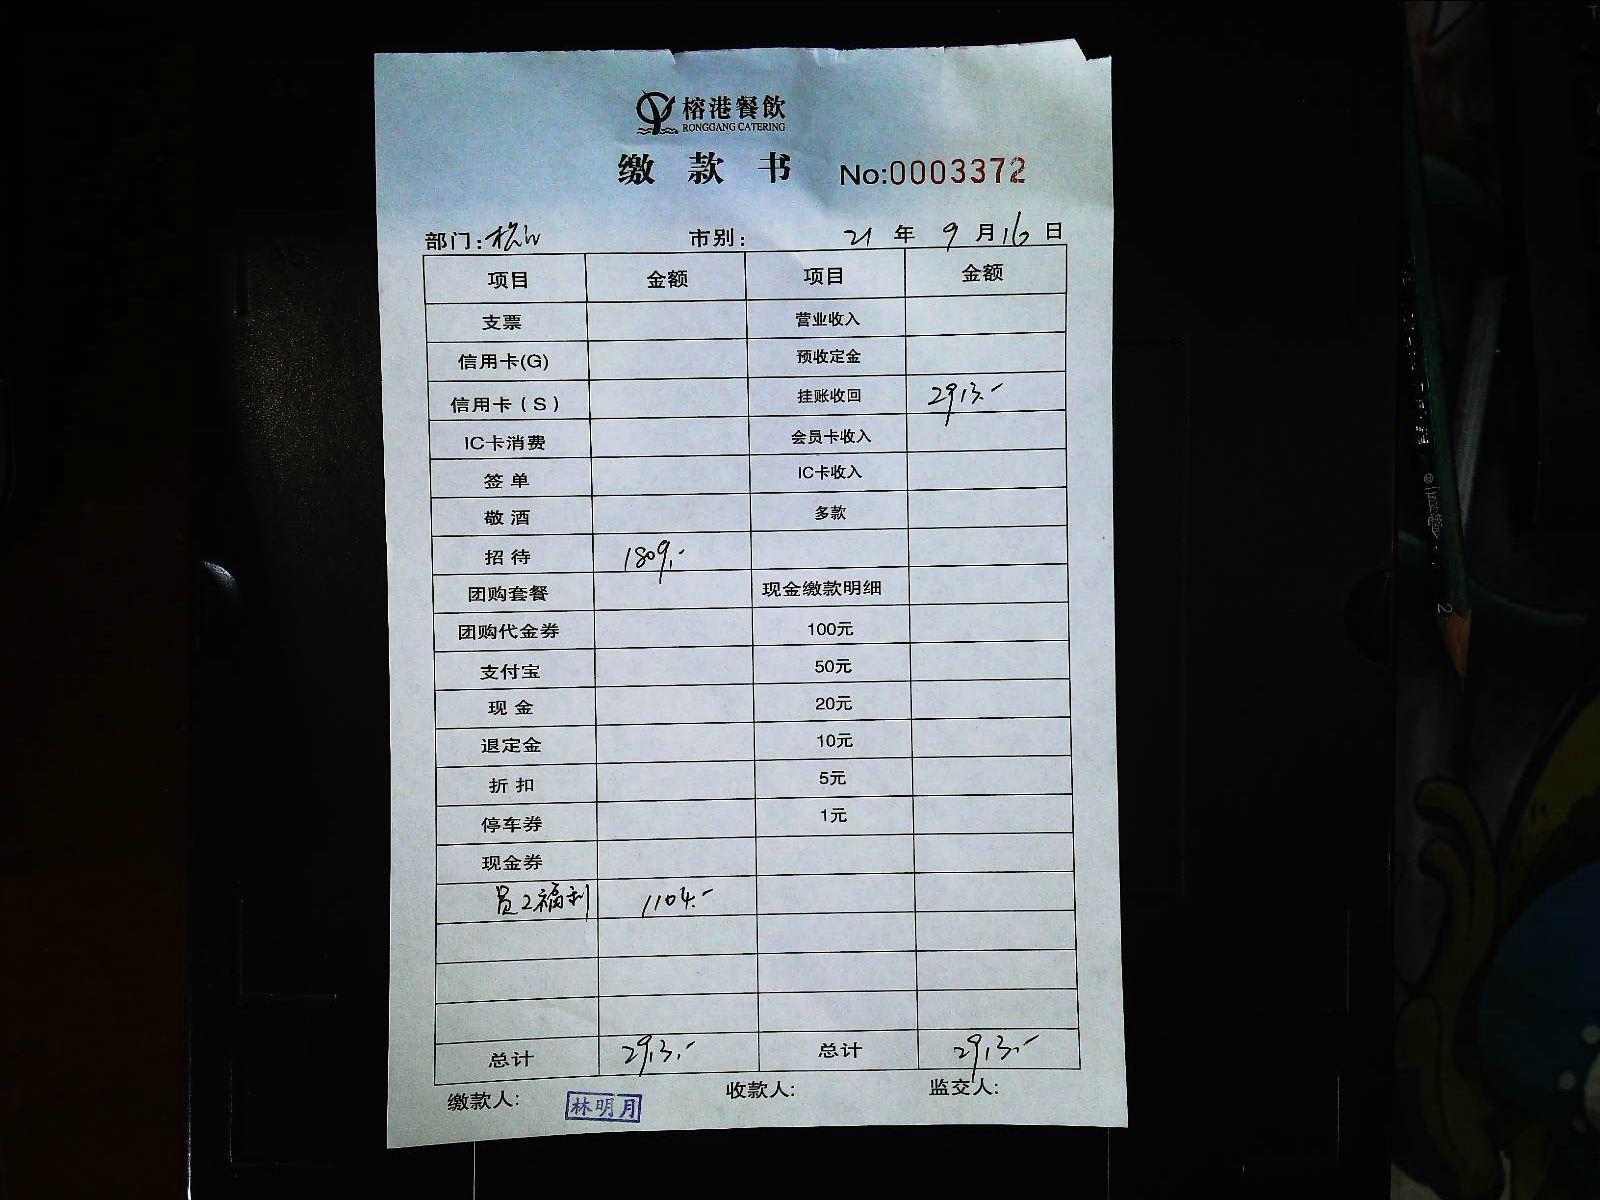 榕港餐飲
RONGGANG CATERING
缴款书 No:0003372
部门: 市别: 21年9月16日
项目 金额 项目 金额
支票 营业收入
信用卡(G) 预收定金
信用卡(S) 挂账收回 2913.-
IC卡消费 会员卡收入
签单 IC卡收入
敬酒 多款
招待 1809.-
团购套餐 现金缴款明细
团购代金券 100元
支付宝 50元
现金 20元
退定金 10元
折扣 5元
停车券 1元
现金券
员工福利 1104.-
总计 2913.- 总计 2913.-
缴款人: 林明月 收款人: 监交人: